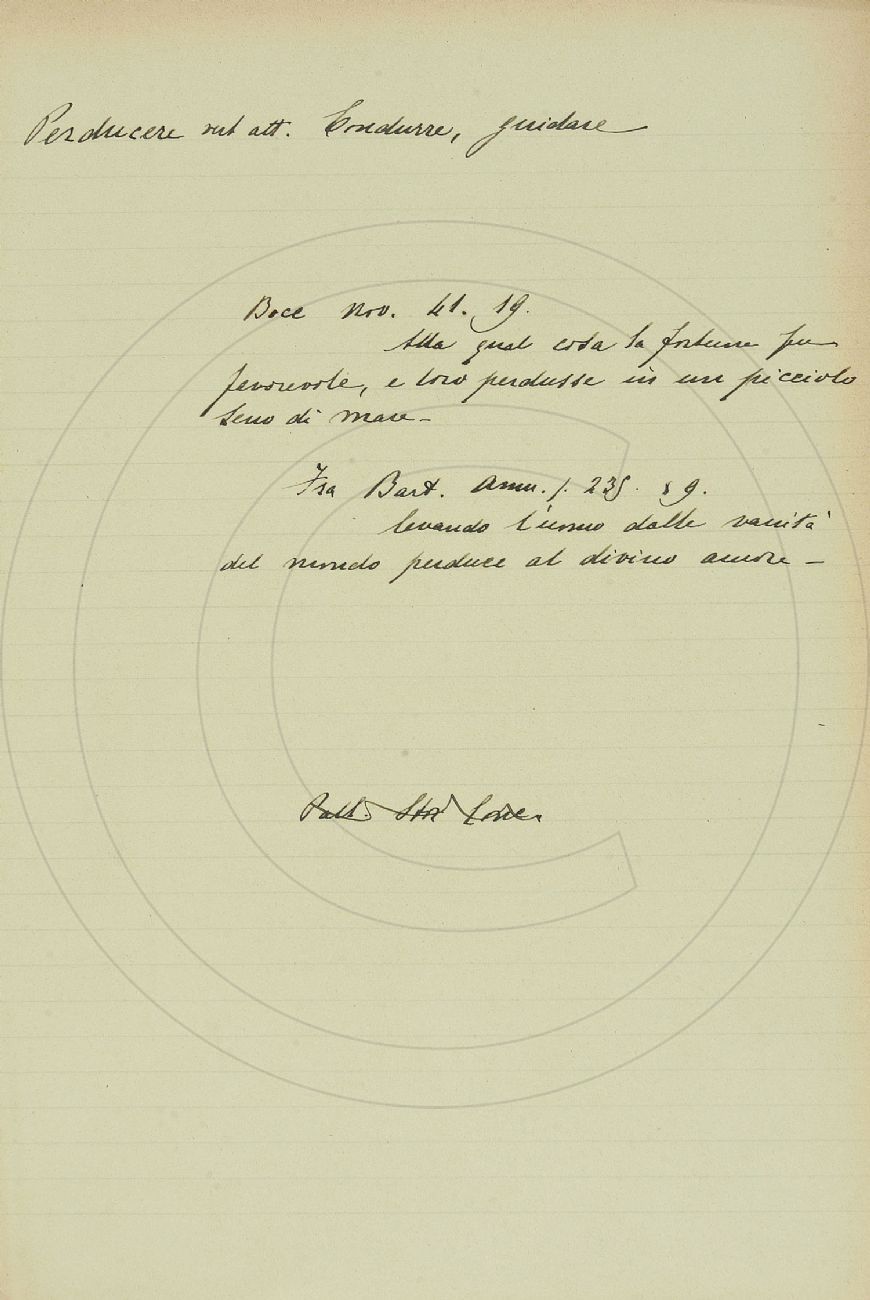 Perducere vrb att. Condurre, guidare
Bocc Nov. 41. 19.
Alla qual cosa la fortuna fu
favorevole, e loro perdusse in un picciolo
seno di mare –
Fra Bart. Amm. f. 235. 89.
levando l'uomo dalle vanità
del mondo perduce al divino amore –